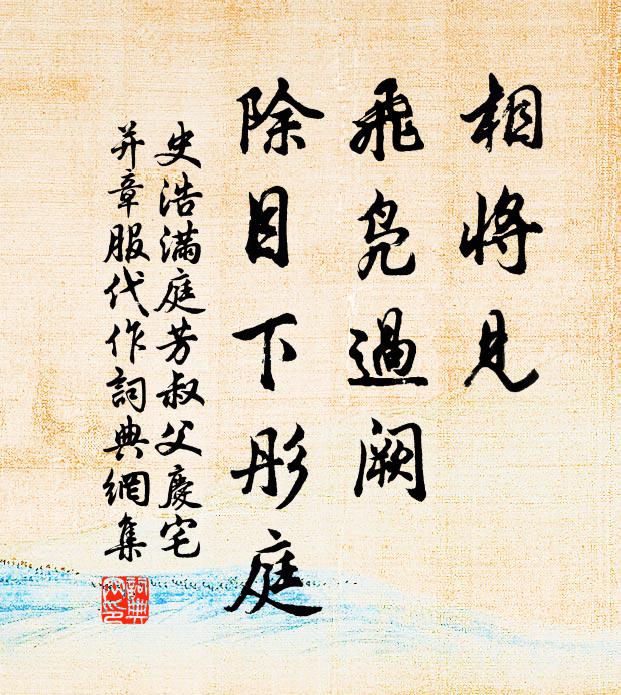 相將見
飛鳧過闕
除目下彤庭
史浩滿庭芳叔父慶宅
并章服代作詞典網集